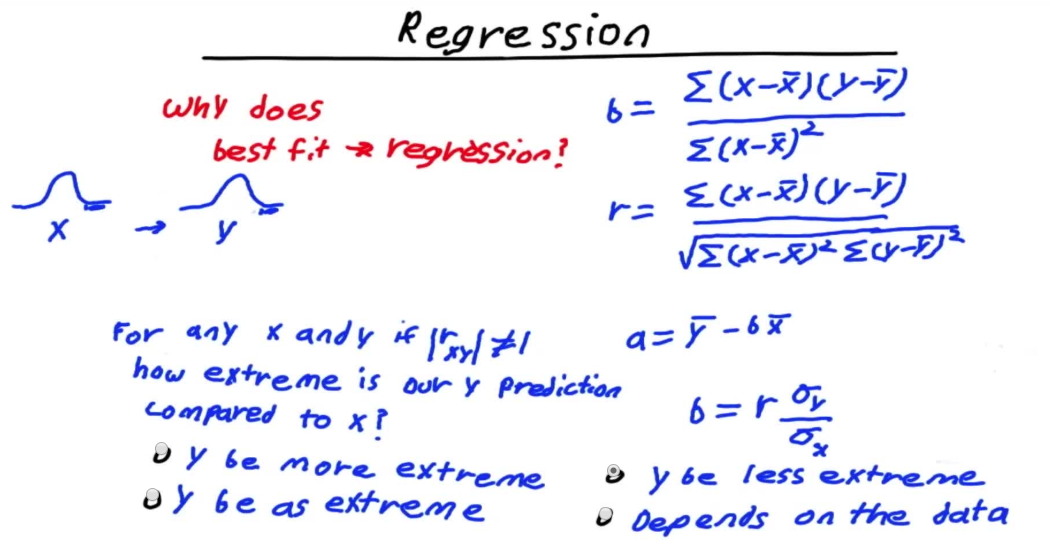 Regression
Why does
best fit → regression?
x → y
b = Σ(x-x̄)(y-ȳ) / Σ(x-x̄)²
r = Σ(x-x̄)(y-ȳ) / √Σ(x-x̄)² Σ(y-ȳ)²
For any x and y if |r_xy| ≠ 1
how extreme is our y prediction
compared to x?
a = ȳ - b x̄
b = r σ_y / σ_x
y be more extreme
y be as extreme
y be less extreme
Depends on the data